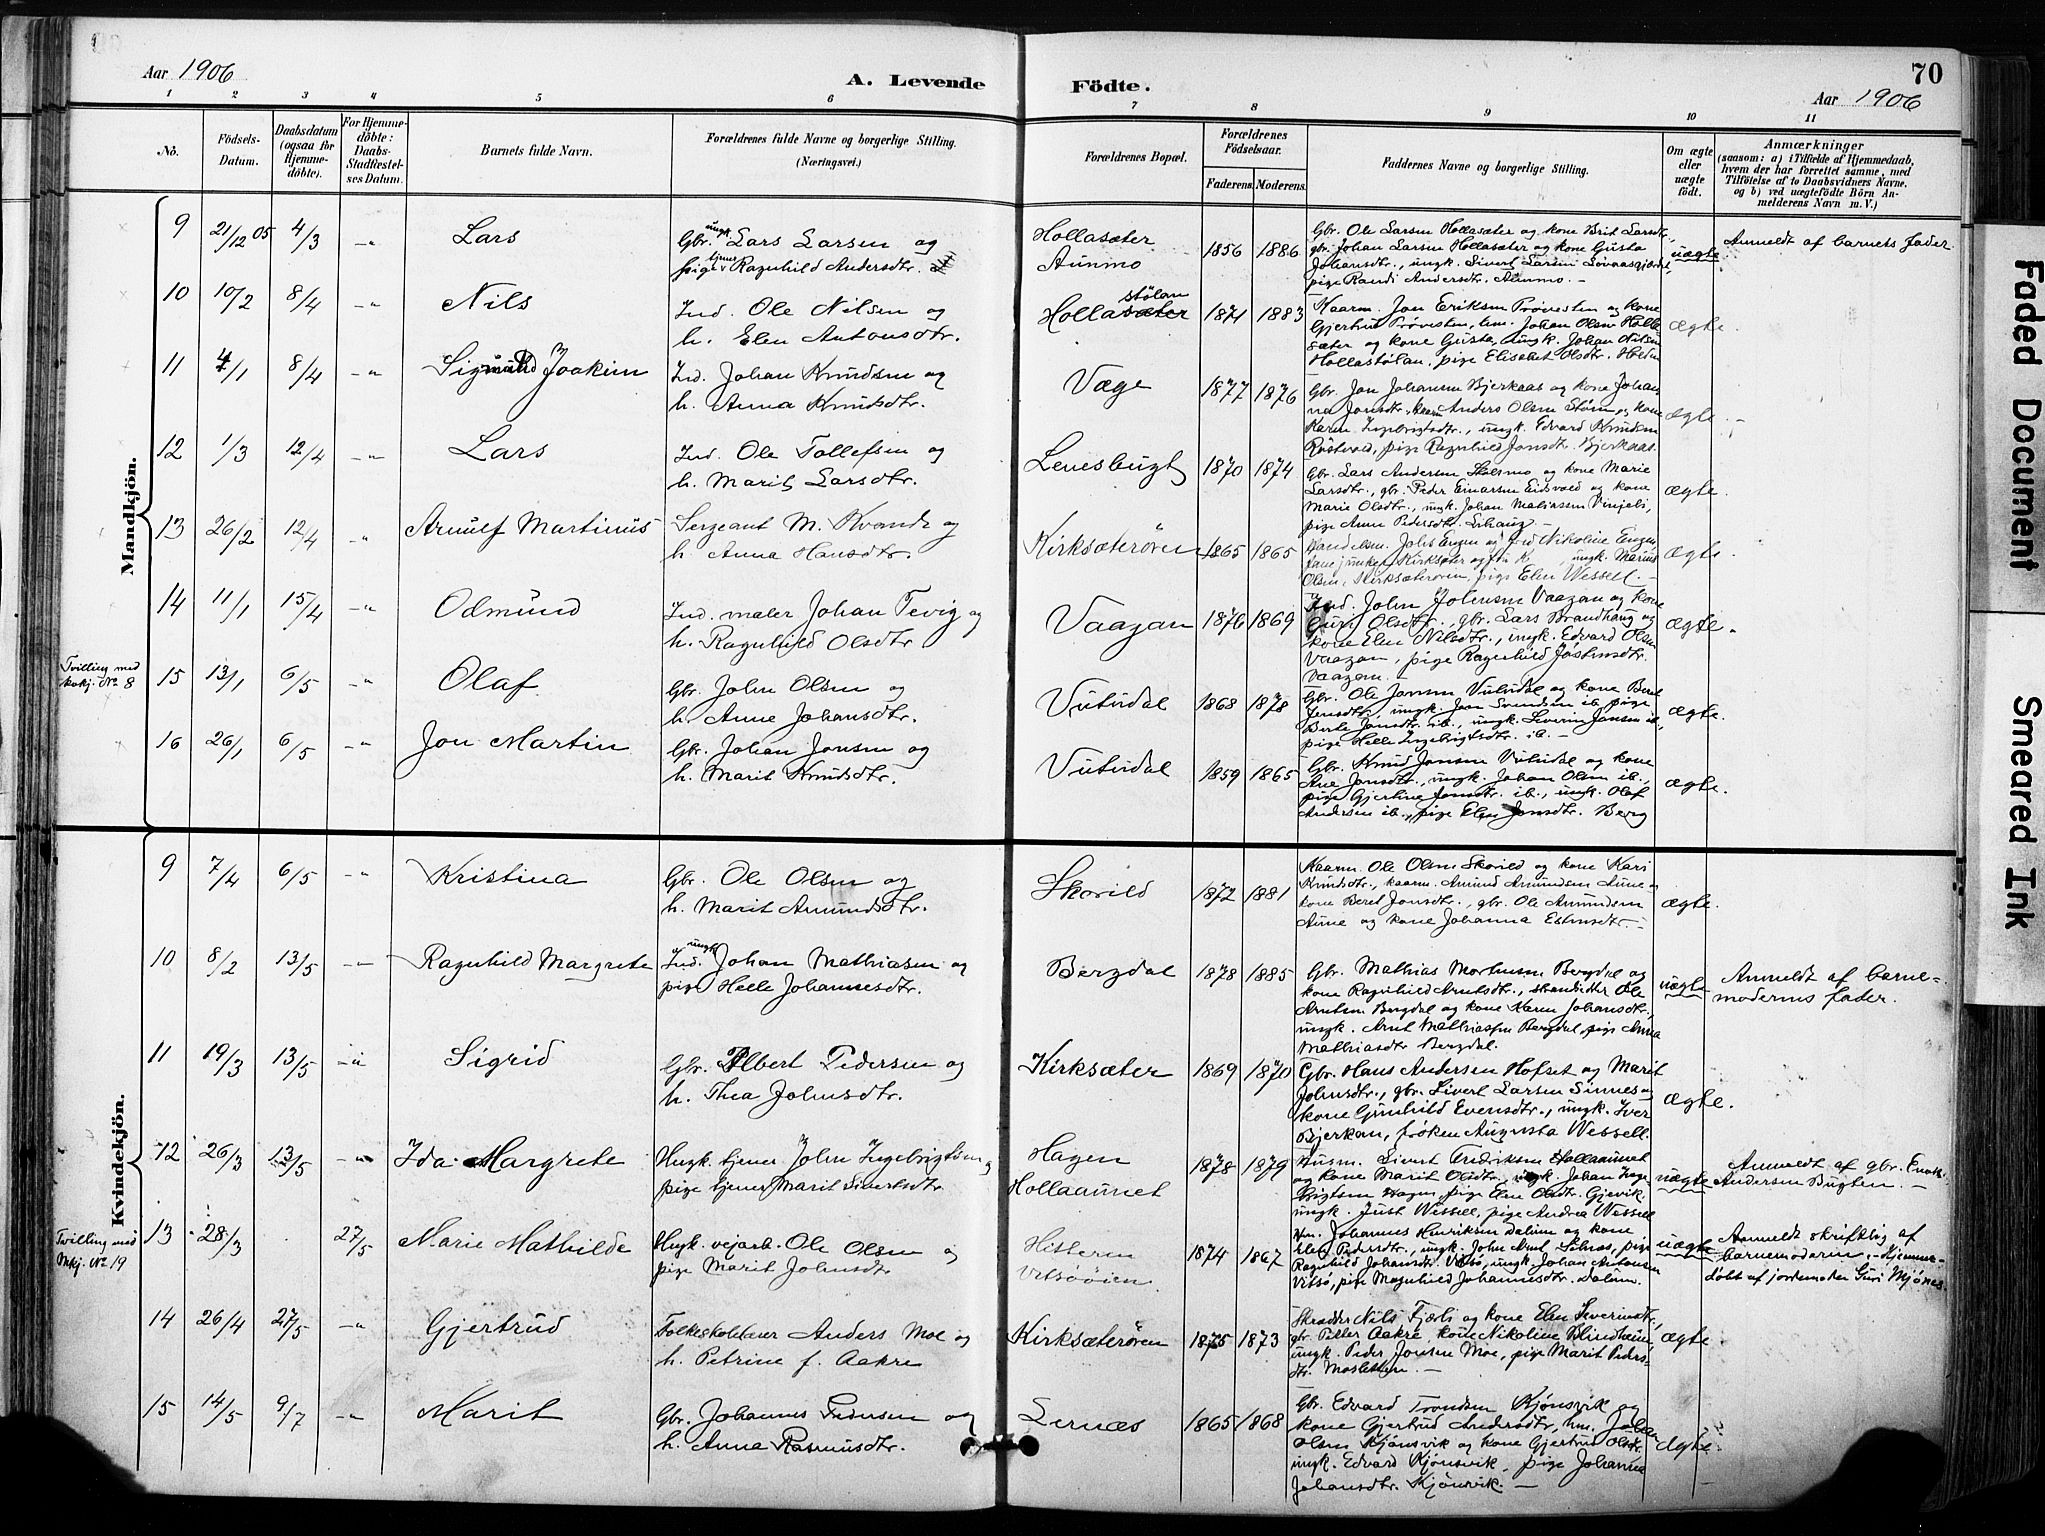 Aar 1906
A. Levende
Födte.
70
Aar 1906
1 2 3 4 5 6 7 8 9 10 11
No.
Födsels-Datum.
Daabsdatum (ogsaa for Hjemme-döbte).
For Hjemme-döbte: Daabs-Stadfæstel-ses Datum.
Barnets fulde Navn.
Forældrenes fulde Navne og borgerlige Stilling. (Næringsvei.)
Forældrenes Bopæl.
Forældrenes Födselsaar.
Faderens. Moderens.
Faddernes Navne og borgerlige Stilling.
Om ægte eller uægte födt.
Anmærkninger (saasom: a) i Tilfælde af Hjemmedaab, hvem der har forrettet samme, med Tilföielse af to Daabsvidners Navne, og b) ved uægtefödte Börn An-melderens Navn m. V.)
Mandkjön.
9 21/12 05 4/3 -"- Lars
Gbr. ungk. Lars Larsen og
pige tjener Ragnhild Andersdtr.
Hollasæter
Aunmo
1856 1886
Gbr. Ole Larsen Hollasæter og kone Brit Larsdtr.,
gbr. Johan Larsen Hollasæter og kone Gusta
Johansdtr., ungk. Sivert Larsen
pige Randi Andersdtr. Aunmo. -
uægte
Anmeldt af barnets fader
10 10/2 8/4 -"- Nils
Ind. Ole Nilsen og
h. Elen Antonsdtr.
Hollasæter stølan
1871 1883
Kaarm. Jon Eriksen Trøvesten og kone
Gjertrud Trøvesten, hm. Johan Olsen Holla-
sæter og kone Gusta, ungk. Johan Nilsen
Hollastølan, pige Elisabet Olsdtr. Holden
ægte.
11 4/1 8/4 -"- Sigmund Joakim
Ind. Johan Knudsen og
h. Anna Knudsdtr.
Væge
1877 1876
Gbr. Jon Johansen Bjerkaas og kone Johan-
na Jonsdtr., kaarm. Anders Olsen Støen og kone
Karen Ingebrigtsdtr., ungk. Edvard Knudsen
pige Ragnhild Jonsdtr. Bjerkaas.
ægte. -
12 1/3 12/4 -"- Lars
Ind. Ole Tollefsen og
h. Marit Larsdtr.
Lenesbugt
1870 1874
Gbr. Lars Andersen Skeismo og kone Marie
Larsdtr., gbr. Peder Einarsen Eidsvold og kone
Marie Olsdtr., ungk. Johan Mathiasen Vinjeli,
pige Anne Pedersdtr.
ægte.
13 26/2 12/4 -"- Arnulf Martinus
Sergeant M. Kvande og
h. Anna Hansdtr.
Kirksæterøren
1865 1865
Handelsm. Johs Engen og fru Nikoline Engen
Kirksæter og ungk. Marius
Olsen, Kirksæterøren, pige Elen Wessell. -
ægte.
14 11/1 15/4 -"- Odmund
Ind. maler Johan Tevig og
h. Ragnhild Olsdtr
Vaagan
1876 1869
Ind. John Johnsen Vaagan og kone
Guri Olsdtr., gbr. Lars Brandhaug og
kone Elen Nilsdtr., ungk. Edvard Olsen
Vaagan, pige Ragnhild Jostensdtr.
Vaagan. -
ægte.
Tvilling med
kvkj. No 8
15 13/1 6/5 -"- Olaf
Gbr. John Olsen og
h. Anne Johansdtr.
Vutudal
1868 1878
Gbr. Ole Jonsen Vutudal og kone Beret
Jonsdtr., ungk. Jon Svendsen ib. pige
Berte Jonsdtr. ib., ungk. Severin Jansen ib.,
pige Helle Ingebrigtsdtr. ib. -
ægte.
16 26/1 6/5 -"- Jon Martin
Gbr. Johan Jonsen og
h. Marit Knudsdtr.
Vutudal
1859 1865
Gbr. Knud Jonsen Vutudal og kone
Ane Jonsdtr., ungk. Johan Olsen ib.,
pige Gjertine Jonsdtr. ib., ungk. Olaf
Andersen ib., pige Elen Jonsdtr. Berg
ægte.
Kvindekjön.
9 7/4 6/5 -"- Kristina
Gbr. Ole Olsen og
h. Marit Amundsdtr.
Skorild
1872 1881
Kaarm. Ole Olsen Skorild og kone Kari
Knudsdtr., kaarm. Amund Amundsen Aune og
kone Beret Jonsdtr., gbr. Ole Amundsen
Aune og kone Johanna Estensdtr. -
ægte.
10 8/2 13/5 -"- Ragnhild Margrete
Ind. ungk. Johan Mathiasen og
pige Helle Johannesdtr.
Bergdal
1878 1885
Gbr. Mathias Mortensen Bergdal og
kone Ragnhild Arntsdtr., strandsidder Ole
Arntsen Bergdal og kone Karen Johansdtr.,
ungk. Arnt Mathiassen Bergdal, pige Anna
Mathiasdtr Bergdal.
uægte
Anmeldt af barne-
moderens fader.
11 19/3 13/5 -"- Sigrid
Gbr. Albert Pedersen og
h. Thea Johnsdtr.
Kirksæter
1869 1870
Gbr. Hans Andersen Hofset og Marit
Johnsdtr., gbr. Sivert Larsen Sinnes og
kone Gunhild Evensdtr., ungk. Iver
Bjerkan, frøken Augusta Wessell.
ægte.
12 26/3 13/5 -"- Ida Margrete
Ungk. tjener John Ingebrigtsen og
pige tjener Marit Sivertsdtr
Hagen
Hollaaunet
1878 1879
Husm. Sivert Fredriksen Hollaaunet
og kone Marit Olsdtr., ungk. Johan Inge-
brigtsen Hagen, pige Elen Olsdtr. Gjevik,
ungk. Just Wessell, pige Andrea Wessell
uægte
Anmeldt af gbr. Enok
Andersen Bugten. -
Tvilling med
Mkj. No 19
13 28/3 27/5 Marie Mathilde
Ungk. vejarb. Ole Olsen og
pige Marit Johnsdtr
Hitteren
Vitsøöien
1874 1867
Hm. Johannes Henriksen Dalum og kone
Elen Pedersdtr., ungk. John Arnt Selnæs, pige
Ragnhild Johansdtr. Vitsø, ungk. Johan Antonsen
Vitsø, pige Magnhild Johannesdtr. Dalum.
uægte
Anmeldt skriftlig af
barnemoderen. - Hjemme-
døbt af jordemoder Guri Mjønes
14 26/4 27/5 -"- Gjertrud
Folkeskolelærer Anders Moe og
h. Petrine f. Aakre
Kirksæterøren
1875 1873
Skrædder Nils Fjæli og kone Elen Severinsdtr,
gbr. Petter Aakre, kone Nikoline Blindheim
ungk. Peder Jonsen Moe, pige Marit Peders-
dtr. Mosletten. -
ægte
15 14/5 9/7 -"- Marit
Gbr. Johannes Pedersen og
h. Anna Rasmusdtr.
Lernæs
1865 1868
Gbr. Edvard Trondsen Kjønsvik og
kone Gjertrud Andersdtr, hm. Johan
Olsen Kjønsvik og kone Gjertrud Olsdtr.
ungk. Edvard Kjønsvik, pige Johanna
Johansdtr. Kjønsvik. -
ægte.
Faded Document
Smeared Ink